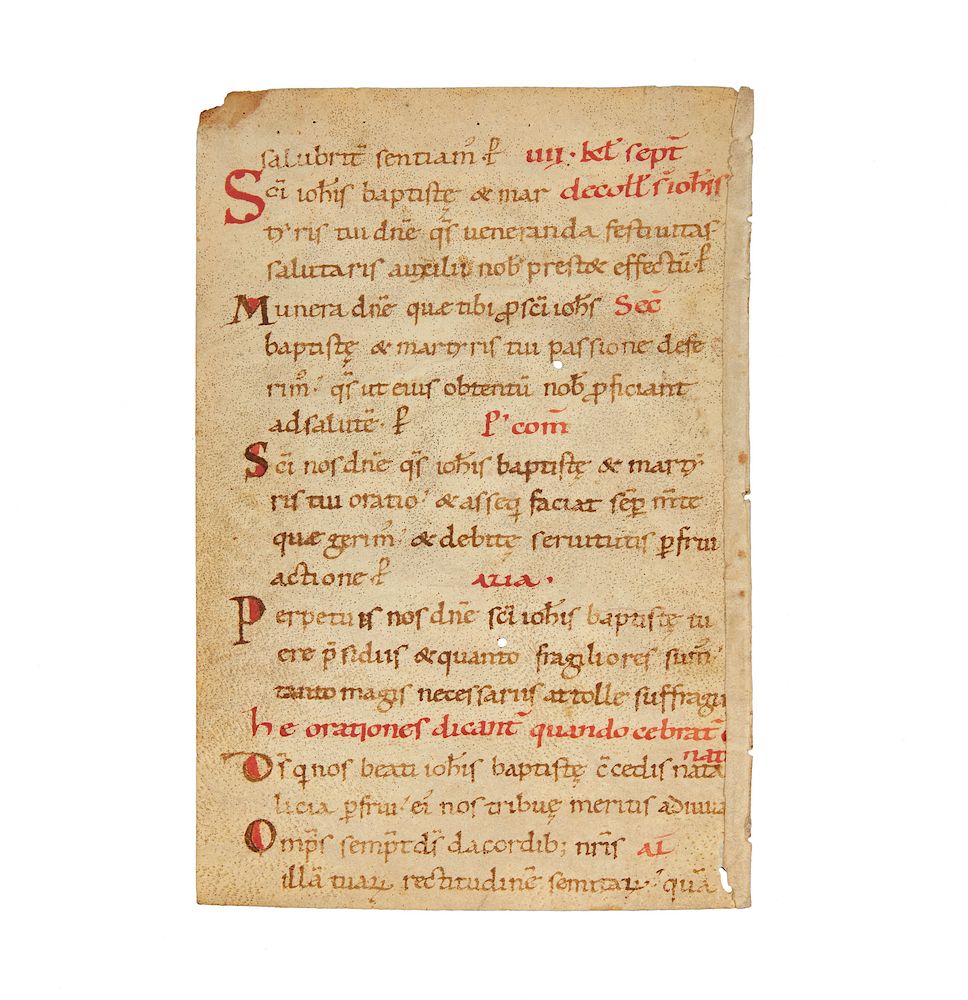 salubrit̄ sentiam᾽ ꝑ iiii · kl̄ sept̄
Sc̄i ioh̄is baptistę & mar decoll̄ s̄ ioh̄is
tyris tui dn̄e qs̄ ueneranda festiuitas
salutaris auxilii nob̄ prestet effectū ꝑ
Munera dn̄e quæ tibi ꝓ sc̄i ioh̄s Sec̄
baptistę & martyris tui passione defe
rim᾽ qs̄ ut eius obtentū nob̄ ꝓficiant
ad salutē · ꝑ P᾽ com̄
Sc̄i nos dn̄e qs̄ ioh̄is baptistę & marty
ris tui oratio & asseq̄ faciat sēp m̄te
quæ gerim᾽ & debitę seruitutis ꝑfrui
actione ꝑ alia ·
Perpetuis nos dn̄e sc̄i ioh̄is baptistę tu
ere p̄sidiis & quanto fragiliores sum᾽
tanto magis necessariis attolle suffragii
he orationes dicant̄ quando cebrat̄
nat̄
Ds̄ q̇ nos beati ioh̄is baptistę c̄cedis nata
licia ꝑfrui ei᾽ nos tribuę meritis adiuua
Omp̄s semp̄t ds̄ da cordib; nr̄is al̄
illā tuaꝝ rectitudinē semitaꝝ quā